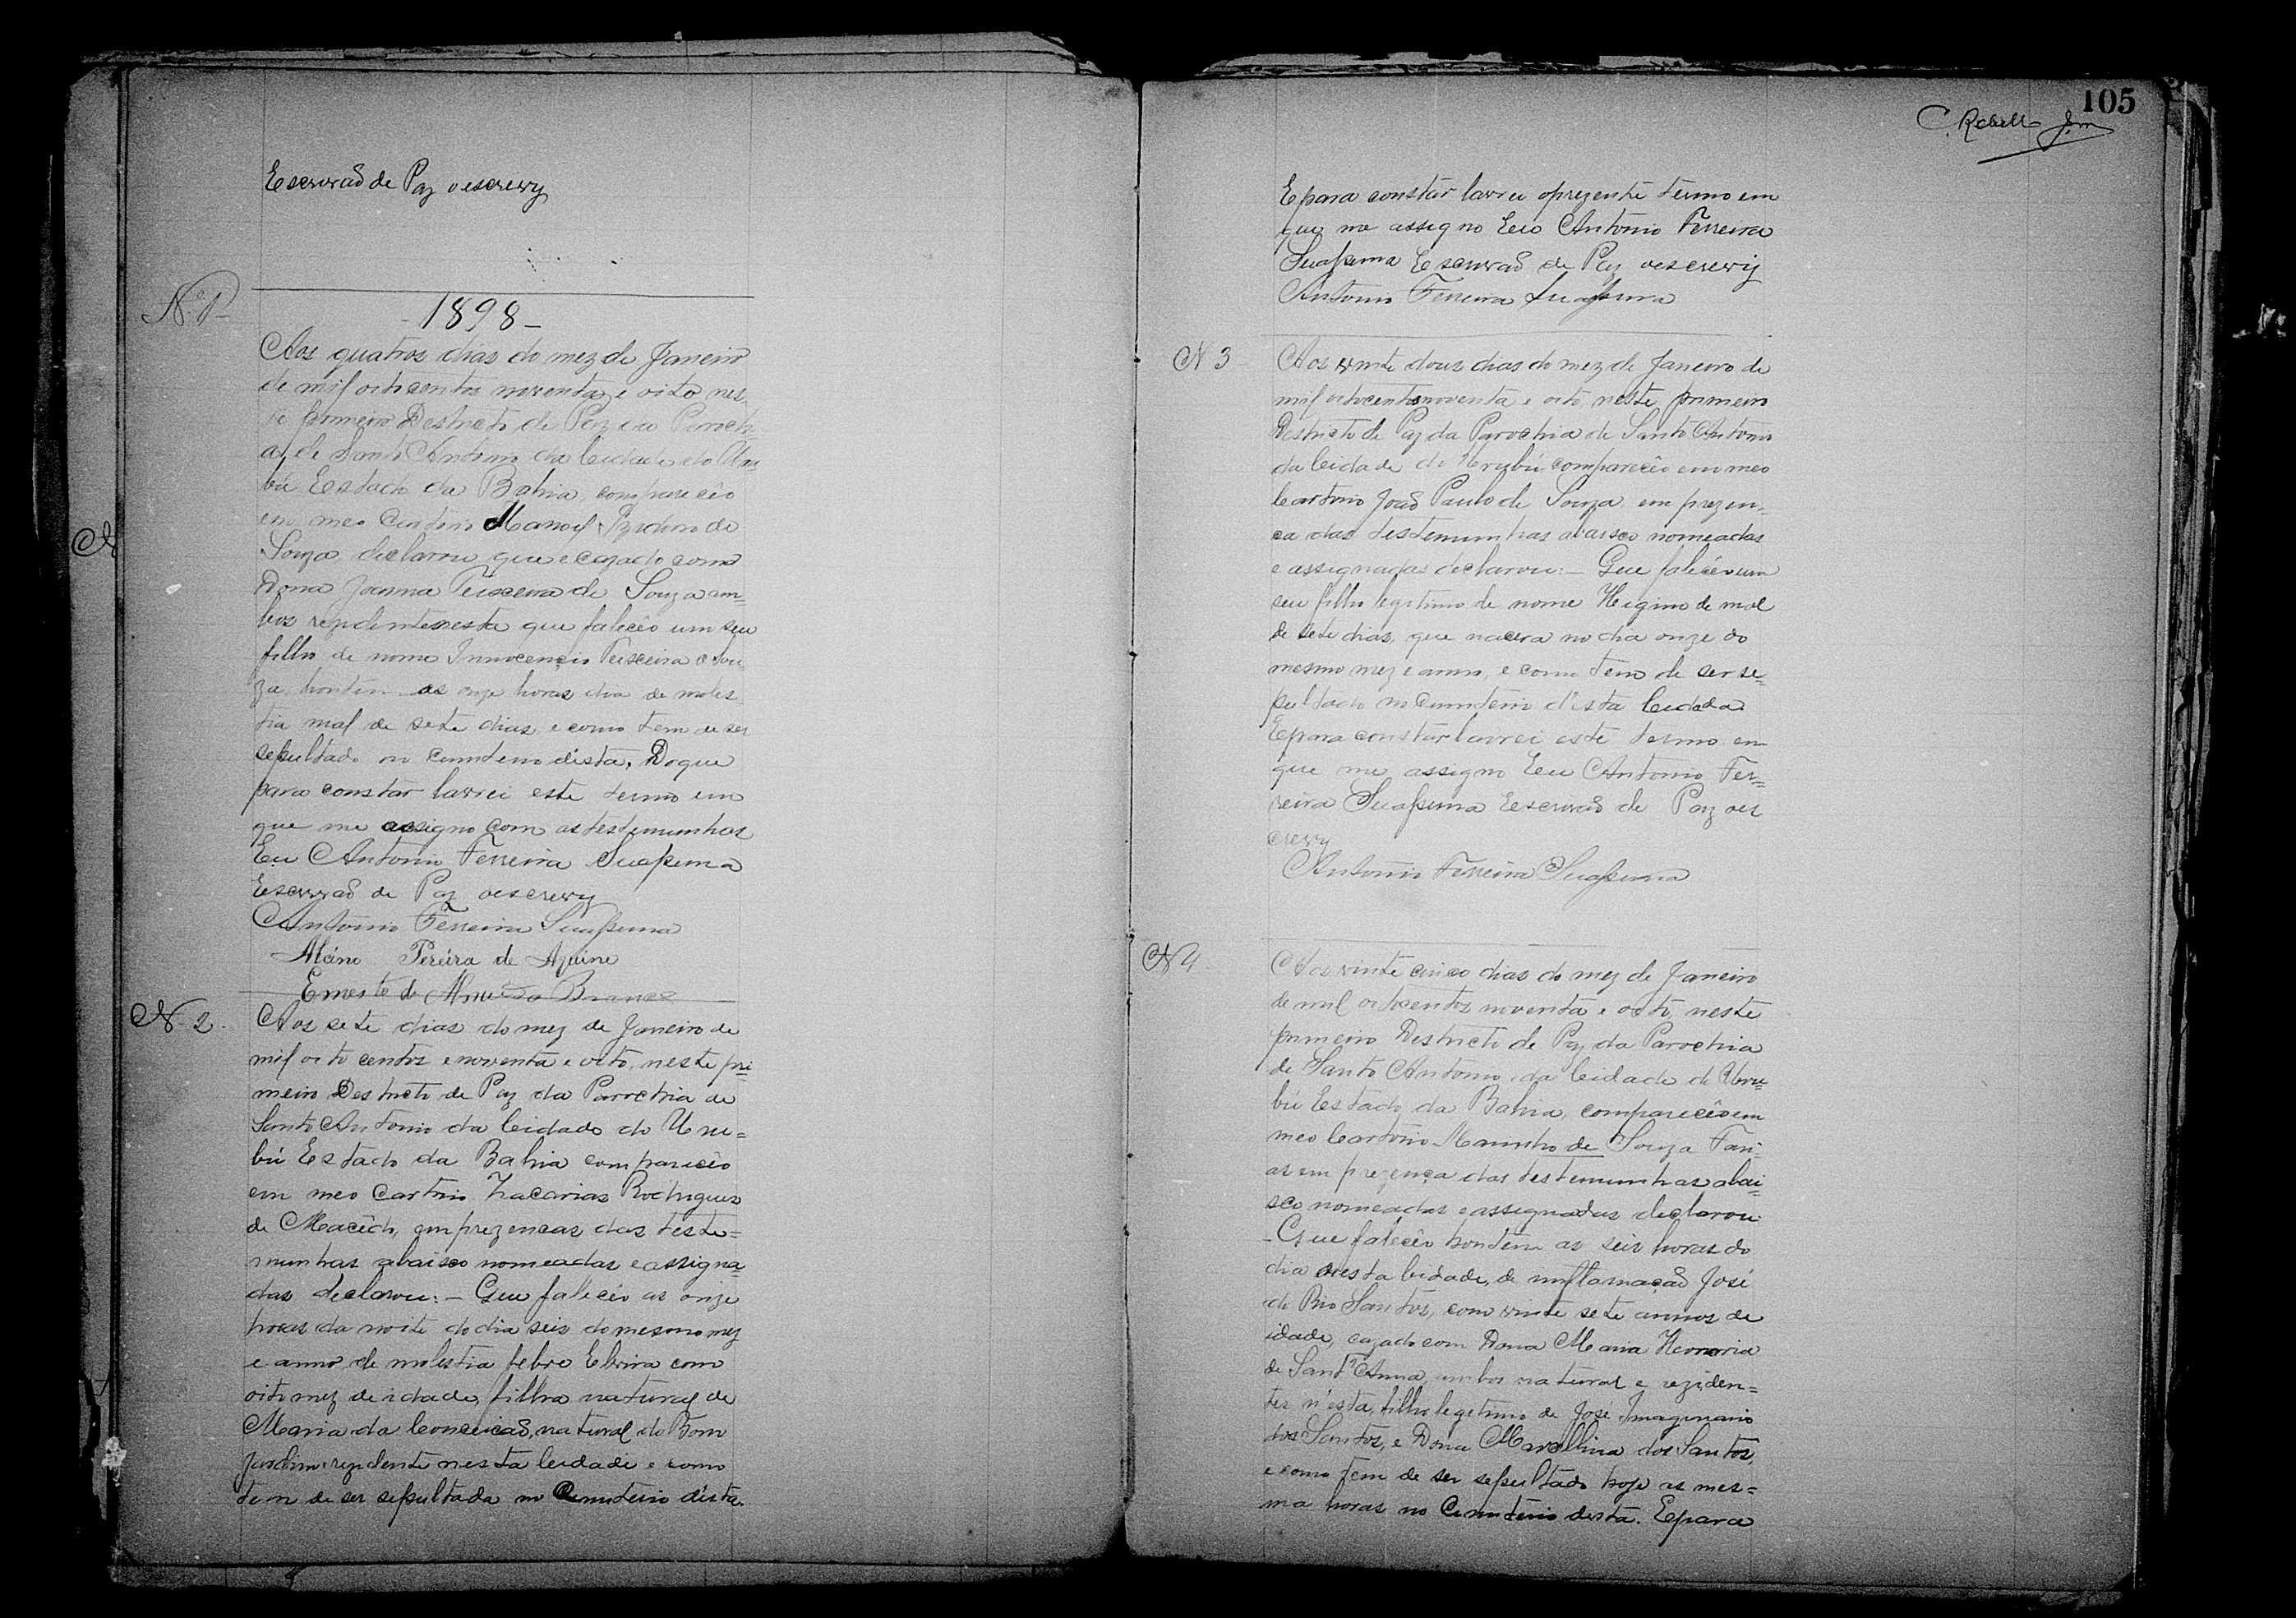 Escrivaõ de Paz o escrevy
N.1
- 1898 -
Aos quatros dias do mez de Janeiro
de mil oitocentos noventa, e oito nes
te primeiro Destricto de Paz da Paroch
a, de Santo Antonio da Cidade do Uru
bú Estado da Bahia, comparecêo
em meo Cartorio Manoel de
Souza, declarou que e cazado com
Dona Joanna Teixeira de Souza am=
bos rezidentes nesta que falecêo um seu
filho de nome Innocencio Teixeira e Sou
za, hontem as onze horas dia de moles
tia mal de sete dias, e como tem de ser
sepultado no Cemiterio d'esta, Do que
para constar lavrei este termo em
que me assigno com as testemunhas
Eu Antonio Ferreira Suassuna
Escrivaõ de Paz o escrevy
Antonio Ferreira Suassuna
Alcino Pereira de Aquino
Ernesto de Branco
N. 2.
Aos sete dias do mez de Janeiro de
mil oito centos e noventa e oito, neste pri
meiro Destricto de Paz da Parochia de
Santo Antonio da Cidade do Uru=
bú Estado da Bahia comparecêo
em meo Cartorio Zacarias Rodrigues
de Macêdo, em prezencas das teste=
munhas abaixo nomeadas e assigna=
das declarou: - Que falecêo as onze
horas da noite do dia seis do mesmo mez
e anno de molestia febre com
oito mez de idade, filha natural de
Maria da Conceicaõ, natural do Bom
Jardim rezidente nesta Cidade e como
tem de ser sepultada no Cemiterio d'esta.
105
C. Rebello Jm
E para constar lavrei o prezente termo em
que me assigno Eeu Antonio Ferreira
Suassuna Escrivaõ de Paz o escrevy
Antonio Ferreira Suassuna
N 3
Aos vinte dous dias do mez de Janeiro de
mil oitocentos noventa e oito, neste, primeiro
Destricto de Paz da Parochia de Santo Antonio
da Cidade do Urubú comparecêo em meo
Cartorio Joaõ Paulo de Souza, em prezen=
ca das testemunhas abaixo nomeadas
e assignadas declarou: - Que falecêo um
seu filho legitimo de nome Higino de mal
de sete dias, que nacera no dia onze do
mesmo mez e anno, e como tem de ser se=
pultado no Cemiterio d'esta Cidade.
E para constar lavrei este termo em
que me assigno Eeu Antonio Fer=
reira Suassuna Escrivaõ de Paz o es
crevy
Antonio Ferreira Suassuna
N 4
Aos vinte cinco dias do mez de Janeiro
de mil oitocentos noventa e oito, neste
primeiro Destricto de Paz da Parochia
de Santo Antonio da Cidade do Uru=
bú Estado da Bahia, comparecêo em
meo Cartorio Marinho de Souza Fari
as em prezença das testemunhas abai=
xo nomeadas e assignadas declarou:
- Que falecêo hontem as seis horas do
dia nesta Cidade, de inflamaçaõ José
do Rio Santos, com vinte sete annos de
idade, cazado com Dona Maria Honoria
de Sant'Anna, ambos natural e reziden=
tes n'esta, filho legetimo de José Imaginario
dos Santos, e Dona Marcellina dos Santos,
e como tem de ser sepultado hoje as mes=
ma horas no Cemiterio desta. E para